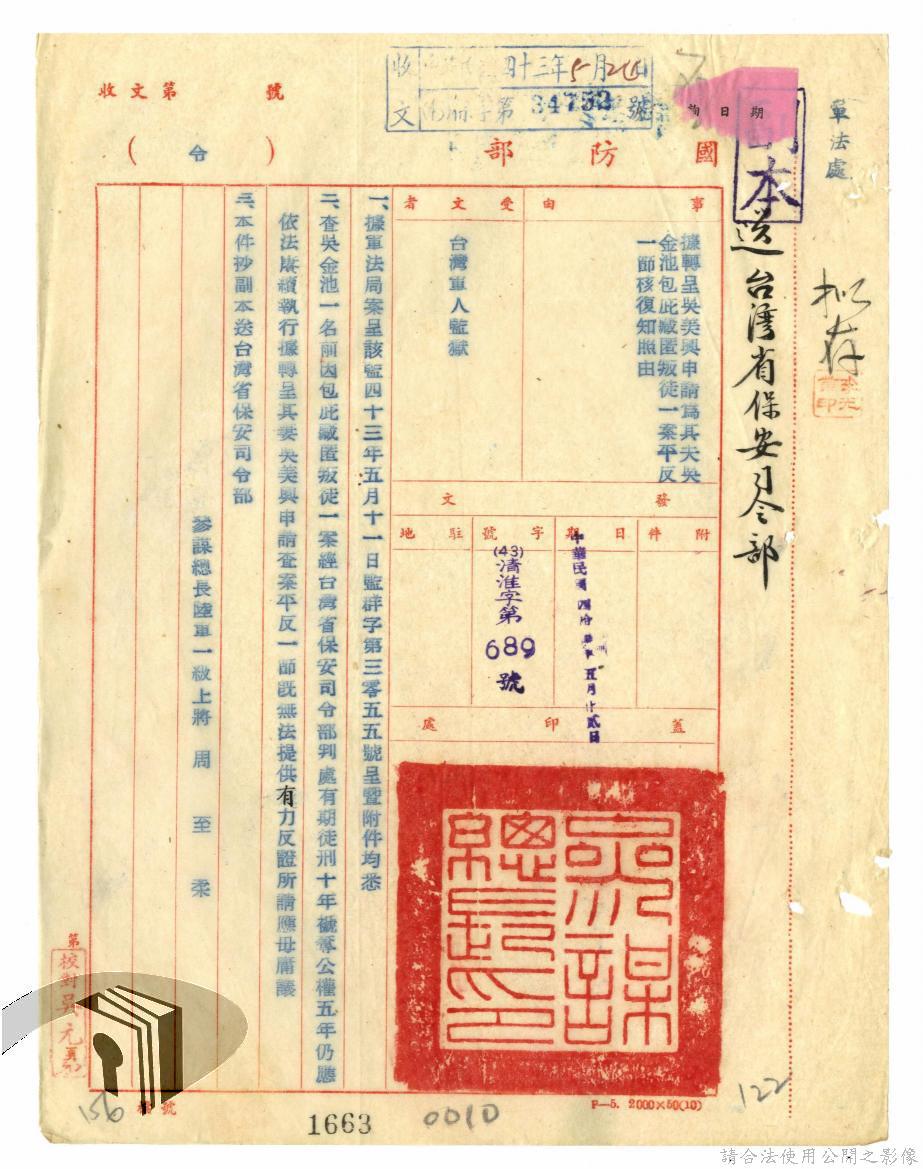 軍法處
擬存
副本
送台灣省保安司令部
收文
四十三年5月
字第34753號
收文第 號
國防部
(令)
期日
事由
據轉呈吳美興申請為其夫吳
金池包庇藏匿叛徒一案平反
一節核復知照由
受文者
台灣軍人監獄
發文
附件
日期
中華民國 五月廿貳日
字號
(43)清淮字第
689
號
駐地
蓋印處
參謀總長之印
一、據軍法局案呈該監四十三年五月十一日監群字第三零五五號呈暨附件均悉
二、查吳金池一名前因包庇藏匿叛徒一案經台灣省保安司令部判處有期徒刑十年褫奪公權五年仍應
依法賡續執行據轉呈其妻吳美興申請查案平反一節既無法提供有力反證所請應毋庸議
三、本件抄副本送台灣省保安司令部
參謀總長陸軍一級上將 周至柔
校對吳元
第 號
156
1663
0010
F—5. 2000×50(10)
122
請合法使用公開之影像